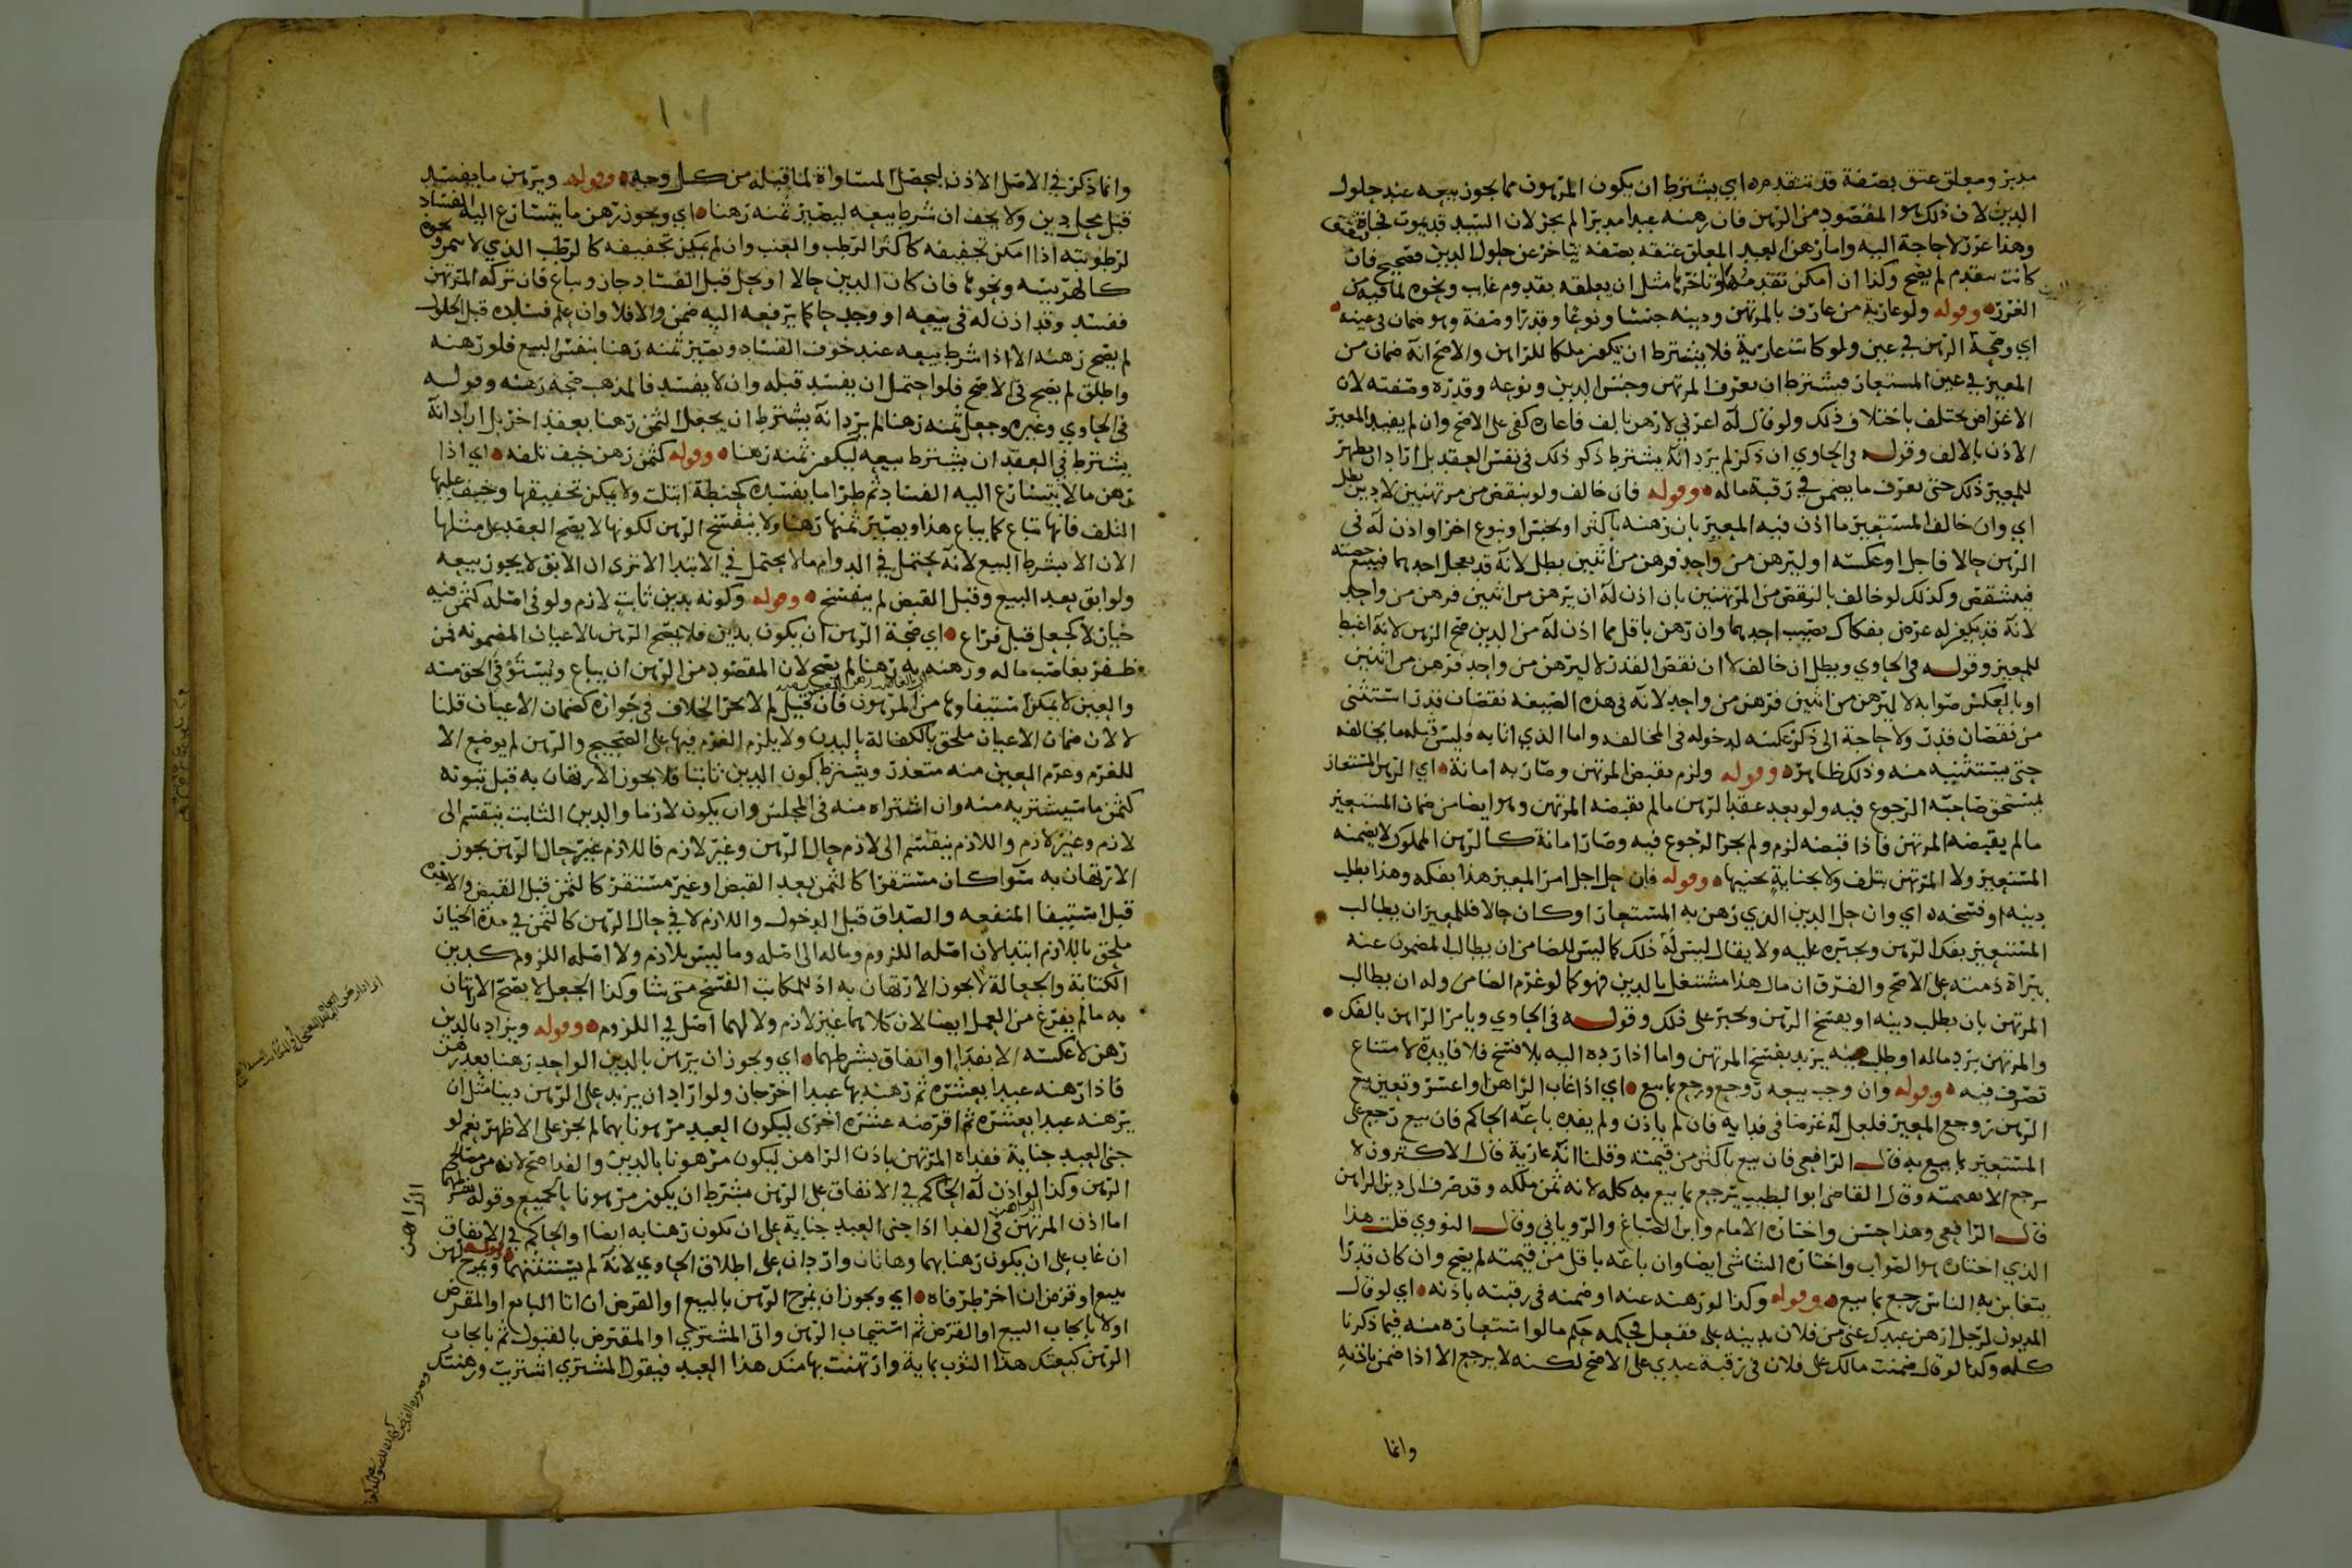 مدبر ومعلق عتق بصفة قد تتقدم ه اي يشترط ان يكون المرهون مما يجوز بيعه عند حلول
الدين لان ذلك هو المقصود من الرهن فان رهنه عبدا مدبرا لم يجز لان السيد قد يموت فجاة فيعتق
وهذا غرر لا حاجة اليه واما رهن العبد المعلق عتقه بصفة يتاخر عن حلول الدين فصحيح فان
كانت تتقدم لم يصح وكذا ان امكن تقدمها وتاخرها مثل ان يعلقه بقدوم غايب ونحوه لما فيه من
الغرر ه وقوله ولو عارية من عارف بالمرتهن ودينه جنسا ونوعا وقدرا وصفة وهو ضمان في عينه ه
اي وصحة الرهن في عين ولو كانت عارية فلا يشترط ان يكون ملكا للراهن والاصح انه ضمان من
المعير في عين المستعار فيشترط ان يعرف المرتهن وجنس الدين ونوعه وقدره وصفته لان
الاغراض تختلف باختلاف ذلك ولو قال له اعرني لارهن بالف فاعاره كفى على الاصح وان لم يقيد المعير
الاذن بالالف وقوله في الحاوي ان ذكر لم يرد انه يشترط ذكر ذلك في نفس العقد بل اراد ان يظهر
للمعير ذلك حتى يعرف ما يضمن في رقبة ماله ه وقوله فان خالف ولو بنقص من مرتهنين لا دين بطل
اي وان خالف المستعير ما اذن فيه المعير بان رهنه باكثر او بجنس او نوع اخر او اذن له في
الرهن حالا فاجل او عكسه او ليرهن من واحد فرهن من اثنين بطل لانه قد يعجل احدهما فيبيع حصته
فيتشقص وكذلك لو خالف بالنقص من المرتهنين بان اذن له ان يرهن من اثنين فرهن من واحد
لانه قد يكون له غرض بفكاك نصيب احدهما وان رهن باقل مما اذن له من الدين صح الرهن لانه اغبط
للمعير وقوله في الحاوي وبطل ان خالف لا ان نقص القدر لا ليرهن من واحد فرهن من اثنين
او بالعكس صوابه لا ليرهن من اثنين فرهن من واحد لانه في هذه الصيغه نقصان قدر استثنى
من نقصان قدر ولا حاجة الى ذكر عكسه لدخوله في المخالفه واما الذي اتا به فليس قبله ما يخالفه
حتى يستثنيه منه وذلك ظاهر ه وقوله ولزم بقبض المرتهن وصار به امانة ه اي الرهن المستعار
يستحق صاحبه الرجوع فيه ولو بعد عقد الرهن ما لم يقبضه المرتهن وهو ايضا من ضمان المستعير
ما لم يقبضه المرتهن فاذا قبضه لزم ولم يجز الرجوع فيه وصار امانة كالرهن المملوك لا يضمنه
المستعير ولا المرتهن بتلف ولا بجناية يجنيها ه وقوله فان حل اجل امر المعير هذا بفكه وهذا بطلب
دينه او فسخه ه اي وان حل الدين الذي رهن به المستعار او كان حالا فللمعير ان يطالب
المستعير بفك الرهن ويجبره عليه ولا يقال ليس له ذلك كما ليس للضامن ان يطالب المضمون عنه
ببراة ذمته على الاصح والفرق ان مال هذا مشتغل بالدين فهو كما لو غرم الضامن وله ان يطالب
المرتهن بان يطلب دينه او يفسخ الرهن ويجبر على ذلك وقوله في الحاوي ويامر الراهن بالفك
والمرتهن برد ماله او طلب دينه يريد بفسخ المرتهن واما اذا رده اليه بلا فسخ فلا فايدة لامتناع
تصرف فيه ه وقوله وان وجب بيعه روجع ورجع بما بيع ه اي اذا غاب الراهن او اعسر وتعين بيع
الرهن روجع المعير فلعل له غرضا في فدايه فان لم ياذن ولم يفده باعه الحاكم فان بيع رجع على
المستعير بما بيع به قال الرافعي فان بيع باكثر من قيمته وقلنا انه عارية قال الاكثرون لا
يرجع الا بقيمته وقال القاضي ابو الطيب يرجع بما بيع به كله لانه ثمن ملكه وقد صرف الى دين الراهن
قال الرافعي وهذا حسن واختاره الامام وابن الصباغ والروياني وقال النووي قلت هذا
الذي اختاره هو الصواب واختاره الشاشي ايضا وان باعه باقل من قيمته لم يصح وان كان قدرا
يتغابن به الناس رجع بما بيع ه وقوله وكذا لو رهنه عنه او ضمنه في رقبته باذنه ه اي لو قال
المديون لرجل ارهن عبدك عني من فلان بدينه علي ففعل فحكمه حكم ما لو استعاره منه فيما ذكرنا
كله وكذا لو قال ضمنت مالك على فلان في رقبة عبدي على الاصح لكنه لا يرجع الا اذا ضمن باذنه
وانما
١٠١
وانما ذكر في الاصل الاذن ليحصل المساواة لما قبله من كل وجه ه وقوله ويرهن ما يفسد
قبل محل دين ولا يجف ان شرط بيعه ليصير ثمنه رهنا ه اي ويجوز رهن ما يتسارع اليه الفساد
لرطوبته اذا امكن تجفيفه كالثمر الرطب والعنب وان لم يمكن تجفيفه كالرطب الذي لا يتمر ونحوه
كالهريسه ونحوها فان كان الدين حالا او يحل قبل الفساد جاز ويباع فان تركه المرتهن
ففسد وقد اذن له في بيعه او وجد حاكما يرفعه اليه ضمن والا فلا وان علم فساده قبل الحلول
لم يصح رهنه الا اذا شرط بيعه عند خوف الفساد ويصير ثمنه رهنا بنفس البيع فلو رهنه
واطلق لم يصح في الاصح فلو احتمل ان يفسد قبله وان لا يفسد فالمذهب صحة رهنه وقوله
في الحاوي وغيره وجعل ثمنه رهنا لم يرد انه يشترط ان يجعل الثمن رهنا بعقد اخر بل اراد انه
يشترط في العقد ان يشترط بيعه ليكون ثمنه رهنا ه وقوله كثمن رهن خيف تلفه ه اي اذا
رهن ما لا يتسارع اليه الفساد ثم طرا ما يفسده كحنطة ابتلت ولا يمكن تجفيفها وخيف عليها
التلف فانها تباع كما يباع هذا ويصير ثمنها رهنا ولا ينفسخ الرهن لكونها لا يصح العقد على مثلها
الان الا بشرط البيع لانه يحتمل في الدوام ما لا يحتمل في الابتدا الا ترى ان الابق لا يجوز بيعه
ولو ابق بعد البيع وقبل القبض لم ينفسخ ه وقوله وكونه بدين ثابت لازم ولو في اصله كثمن فيه
خيار لا كجعل قبل فراغ ه اي صحة الرهن ان يكون بدين فلا يصح الرهن بالاعيان المضمونه فمن
ظفر بغاصب ماله ورهنه به رهنا لم يصح لان المقصود من الرهن ان يباع ويستوفى الحق منه
والعين لا يمكن استيفاوها من المرهون فان قيل لم لا يجر الخلاف في جوازه كضمان الاعيان قلنا
لا لان ضمان الاعيان ملحق بالكفالة بالبدن ولا يلزم الغرم فيها على الصحيح والرهن لم يوضع الا
للغرم وغرم العين منه متعذر ويشترط كون الدين ثابتا فلا يجوز الارتهان به قبل ثبوته
كثمن ما سيشتريه منه وان اشتراه منه في المجلس وان يكون لازما والدين الثابت ينقسم الى
لازم وغير لازم واللازم ينقسم الى لازم حال الرهن وغير لازم فاللازم غير حال الرهن يجوز
الارتهان به سوا كان مستقرا كالثمن بعد القبض او غير مستقر كالثمن قبل القبض والاجرة
قبل استيفا المنفعه والصداق قبل الدخول واللازم لا في حال الرهن كالثمن في مدة الخيار
ملحق باللازم ابتدا لان اصله اللزوم وماله الى اصله وما ليس بلازم ولا اصله اللزوم كدين
الكتابة والجعالة لا يجوز الارتهان به اذ للمكاتب الفسخ متى شا وكذا الجعل لا يصح الارتهان
به ما لم يفرغ من العمل ايضا لان كلاهما غير لازم ولا لهما اصل في اللزوم ه وقوله ويزاد بالدين
رهن لا عكسه الا بفدا او انفاق بشرطهما ه اي ويجوز ان يرهن بالدين الواحد رهنا بعد رهن
فاذا رهنه عبدا بعشره ثم رهنه بها عبدا اخر جاز ولو اراد ان يزيد على الرهن دينا مثل ان
يرهنه عبدا بعشره ثم اقرضه عشره اخرى ليكون العبد مرهونا بهما لم يجز على الاظهر نعم لو
جنى العبد جناية ففداه المرتهن باذن الراهن ليكون مرهونا بالدين والفدا صح لانه من مصالح
الرهن وكذا لو اذن له الحاكم في الانفاق على الرهن بشرط ان يكون مرهونا بالجميع وقوله بشرطهما
اما اذن المرتهن الراهن في الفدا اذا جنى العبد جناية على ان يكون رهنا به ايضا او الحاكم في الانفاق
ان غاب على ان يكون رهنا بهما وهاتان واردتان على اطلاق الحاوي لانه لم يستثنهما ه وقوله ويمزج رهن
ببيع او قرض ان اخر طرفاه ه اي ويجوز ان يمزج الرهن بالبيع او القرض ان اتا البايع او المقرض
اولا بايجاب البيع او القرض ثم استيجاب الرهن واتى المشتري او المقترض بالقبول ثم بايجاب
الرهن كبعتك هذا الثوب بماية وارتهنت بها منك هذا العبد فيقول المشتري اشتريت ورهنتك
الراهن